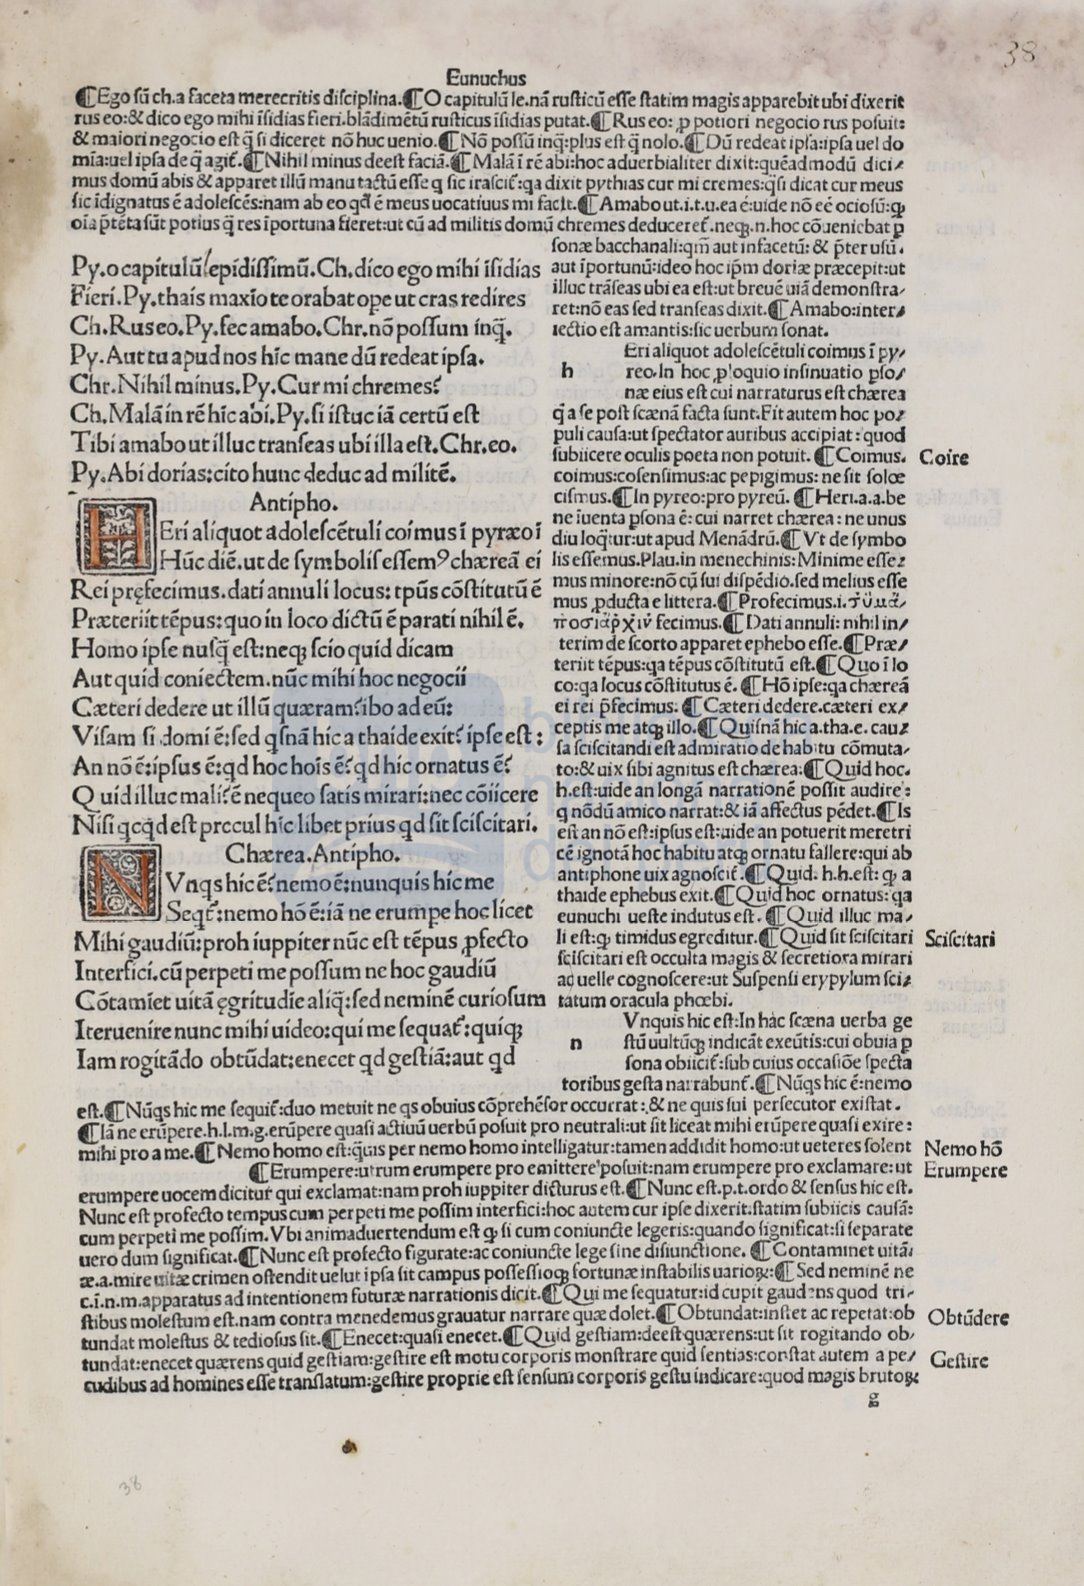 38
Eunuchus
¶Ego sũ ch.a faceta merecritis disciplina.¶O capitulũ le.nã rusticũ esse statim magis apparebit ubi dixerit
rus eo:& dico ego mihi ĩsidias fieri.blãdimẽtũ rusticus ĩsidias putat.¶Rus eo:ꝓ potiori negocio rus posuit:
& maiori negocio est q̃ si diceret nõ huc uenio.¶Nõ possũ inq̃:plus est q̃ nolo.¶Dũ redeat ipsa:ipsa uel do
mĩa:uel ipsa de q̃ agit̃.¶Nihil minus deest faciã.¶Malã ĩ rẽ abi:hoc aduerbialiter dixit:quẽadmodũ dici⸗
mus domũ abis & apparet illũ manu tactũ esse q sic irascit̃:qa dixit pythias cur mi cremes:q̃si dicat cur meus
sic ĩdignatus ẽ adolescẽs:nam ab eo qđ ẽ meus uocatiuus mi facit.¶Amabo ut.i.t.u.ea ẽ:uide nõ eẽ ociosũ:ꝙ
oĩa p̃tẽta sũt potius q̃ res ĩportuna fieret:ut cũ ad militis domũ chremes deduceret̃.neqꝫ.n.hoc cõueniebat ꝑ
sonæ bacchanali:qm̃ aut infacetũ:& p̃ter usũ.
aut ĩportunũ:ideo hoc ip̃m doriæ præcepit:ut
illuc trãseas ubi ea est:ut breuẽ uiã demonstra⸗
ret:nõ eas sed transeas dixit.¶Amabo:inter⸗
iectio est amantis:sic uerbum sonat.
Py.o capitulũ lepidissimũ.Ch.dico ego mihi ĩsidias
Fieri.Py.thais maxĩo te orabat ope ut cras redires
Ch.Rus eo.Py.fec amabo.Chr.nõ possum inq̃.
Py.Aut tu apud nos hic mane dũ redeat ipsa.
Chr.Nihil minus.Py.Cur mi chremes?
Ch.Malã in rẽ hic abi.Py.si istuc iã certũ est
Tibi amabo ut illuc transeas ubi illa est.Chr.eo.
Py.Abi dorias:cito hunc deduc ad militẽ.
Antipho.
HEri aliquot adolescẽtuli coimus ĩ pyræo ĩ
Hũc diẽ.ut de symbolis essemꝰ chæreã ei
Rei pręfecimus.dati annuli locus: tp̃us cõstitutũ ẽ
Præteriit tẽpus:quo in loco dictũ ẽ parati nihil ẽ.
Homo ipse nusq̃ est:neqꝫ scio quid dicam
Aut quid coniectem.nũc mihi hoc negocii
Cæteri dedere ut illũ quæram:ibo ad eũ:
Visam si domi ẽ:sed qsnã hic a thaide exit? ipse est:
An nõ ẽ:ipsus ẽ:qd hoc hoĩs ẽ? qd hic ornatus ẽ?
Quid illuc mali?ẽ nequeo satis mirari:nec cõiicere
Nisi qcqd est procul hic libet prius qd sit sciscitari.
Chærea.Antipho.
NVnqs hic ẽ? nemo ẽ:nunquis hic me
Seqt̃:nemo hõ ẽ:iã ne erumpe hoc licet
Mihi gaudiũ:proh iuppiter nũc est tẽpus ꝓfecto
Interfici.cũ perpeti me possum ne hoc gaudiũ
Cõtamiet uitã ęgritudie aliq̃:sed neminẽ curiosum
Iteruenire nunc mihi uideo:qui me sequat̃:quiqꝫ
Iam rogitãdo obtũdat:enecet qd gestiã:aut qd
Eri aliquot adolescẽtuli coimus ĩ py⸗
h reo.In hoc ꝓloquio insinuatio ꝑso⸗
næ eius est cui narraturus est chærea
q̃ a se post scænã facta sunt.Fit autem hoc po⸗
puli causa:ut spectator auribus accipiat:quod
subiicere oculis poeta non potuit.¶Coimus.
coimus:cõsensimus:ac pepigimus: ne sit solœ
cismus.¶In pyreo:pro pyreũ.¶Heri.a.a.be
ne ĩuenta ꝑsona ẽ: cui narret chærea: ne unus
diu loq̃tur:ut apud Menãdrũ.¶Vt de symbo
lis essemus.Plau.in menechinis:Minime esse⸗
mus minore:nõ cũ sui dispẽdio.sed melius esse
mus ꝓducta e littera.¶Profecimus.i.
fecimus.¶Dati annuli: nihil in⸗
terim de scorto apparet ephebo esse.¶Præ⸗
teriit tẽpus:qa tẽpus cõstitutũ est.¶Quo ĩ lo
co:qa locus cõstitutus ẽ.¶Hõ ipse:qa chæreã
ei rei p̃fecimus.¶Cæteri dedere.cæteri ex⸗
ceptis me atqꝫ illo.¶Quisnã hic a.tha.e.cau⸗
sa sciscitandi est admiratio de habitu cõmuta⸗
to:& uix sibi agnitus est chærea:¶Quid hoc.
h.est:uide an longã narrationẽ possit audire:
q nõdũ amico narrat:& iã affectus pẽdet.¶Is
est an nõ est:ipsus est:uide an potuerit meretri
cẽ ignotã hoc habitu atqꝫ ornatu fallere:qui ab
antiphone uix agnoscit̃.¶Quid. h.h.est: ꝙ a
thaide ephebus exit.¶Quid hoc ornatus:qa
eunuchi ueste indutus est.¶Quid illuc ma⸗
li est:ꝙ timidus egreditur.¶Quid sit sciscitari
sciscitari est occulta magis & secretiora mirari
ac uelle cognoscere:ut Suspensi erypylum sci⸗
tatum oracula phœbi.
Vnquis hic est:In hac scæna uerba ge
n stũ uultũqꝫ indicãt exeũtis:cui obuia ꝑ
sona obiicit̃:sub cuius occasiõe specta
toribus gesta narrabunt̃.¶Nũqs hic ẽ:nemo
est.¶Nũqs hic me sequit̃:duo metuit ne qs obuius cõprehẽsor occurrat:& ne quis sui persecutor existat.
¶Iã ne erũpere.h.l.m.g.erũpere quasi actiuũ uerbũ posuit pro neutrali:ut sit liceat mihi erũpere quasi exire:
mihi pro a me.¶Nemo homo est:q̃uis per nemo homo intelligatur:tamen addidit homo:ut ueteres solent
¶Erumpere:utrum erumpere pro emittere posuit:nam erumpere pro exclamare:ut
erumpere uocem dicitur qui exclamat:nam proh iuppiter dicturus est.¶Nunc est.p.t.ordo & sensus hic est.
Nunc est profecto tempus cum perpeti me possim interfici:hoc autem cur ipse dixerit:statim subiicis causã:
cum perpeti me possim.Vbi animaduertendum est ꝙ si cum coniuncte legeris:quando significat:si separate
uero dum significat.¶Nunc est profecto figurate:ac coniuncte lege sine disiunctione.¶Contaminet uitã:
æ.a.mire uitæ crimen ostendit uelut ipsa sit campus possessioqꝫ fortunæ instabilis uarioꝝ:¶Sed neminẽ ne
c.ĩ.n.m.apparatus ad intentionem futuræ narrationis dicit.¶Qui me sequatur:id cupit gaudens quod tri⸗
stibus molestum est.nam contra menedemus grauatur narrare quæ dolet.¶Obtundat:instet ac repetat:ob
tundat molestus & tediosus sit.¶Enecet:quasi enecet.¶Quid gestiam:deest quærens:ut sit rogitando ob⸗
tundat:enecet quærens quid gestiam:gestire est motu corporis monstrare quid sentias:constat autem a pe⸗
cudibus ad homines esse translatum:gestire proprie est sensum corporis gestu indicare:quod magis brutoꝝ
g
Coire
Sciscitari
Nemo hõ
Erumpere
Obtũdere
Gestire
38